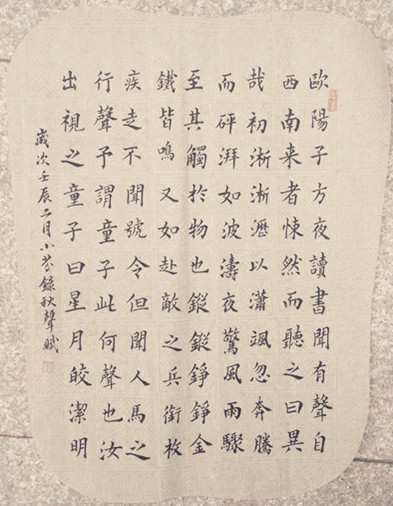 歐陽子方夜讀書聞有聲自
西南来者悚然而聽之曰異
哉初淅淅瀝以瀟颯忽奔騰
而砰湃如波濤夜驚風雨驟
至其觸於物也鏦鏦錚錚金
鐵皆鳴又如赴敵之兵銜枚
疾走不聞號令但聞人馬之
行聲予謂童子此何聲也汝
出視之童子曰星月皎潔明
歲次壬辰二月小芬錄秋聲賦